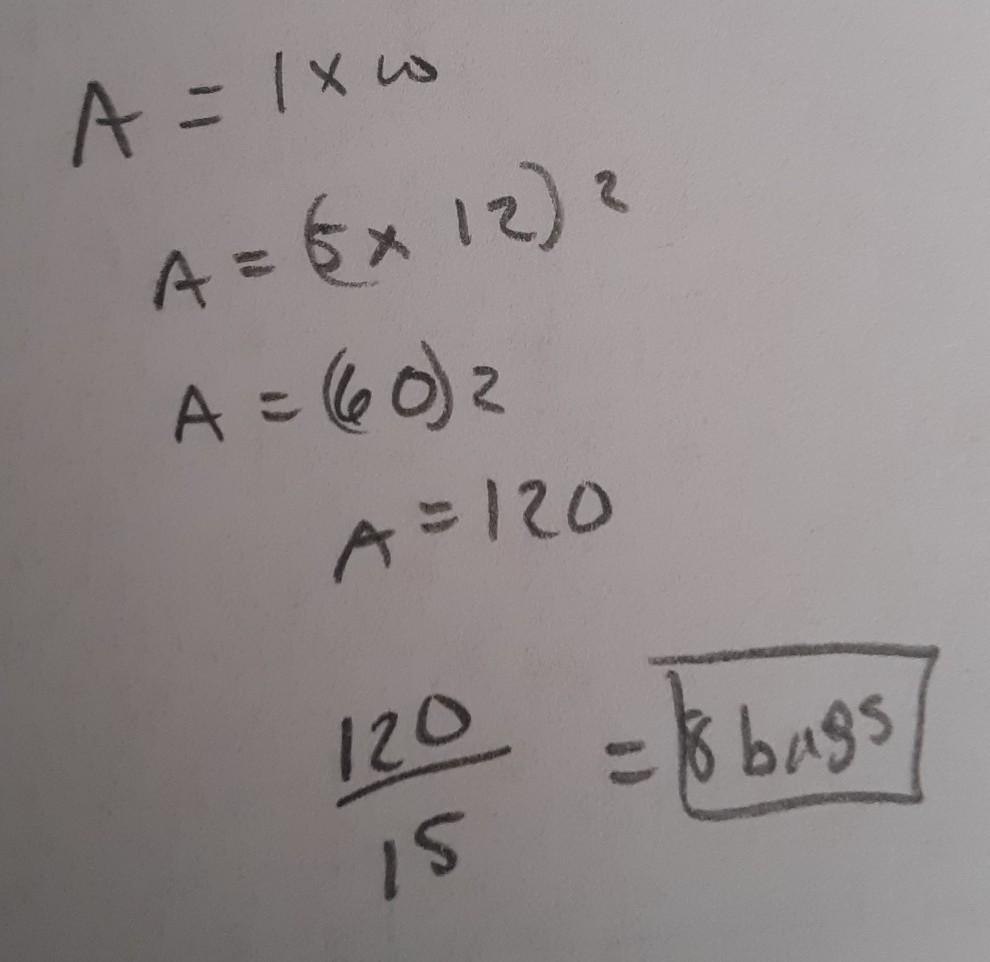 A = l x w
A = (5 x 12) 2
A = (60) 2
A = 120
120
15
= 8 bags